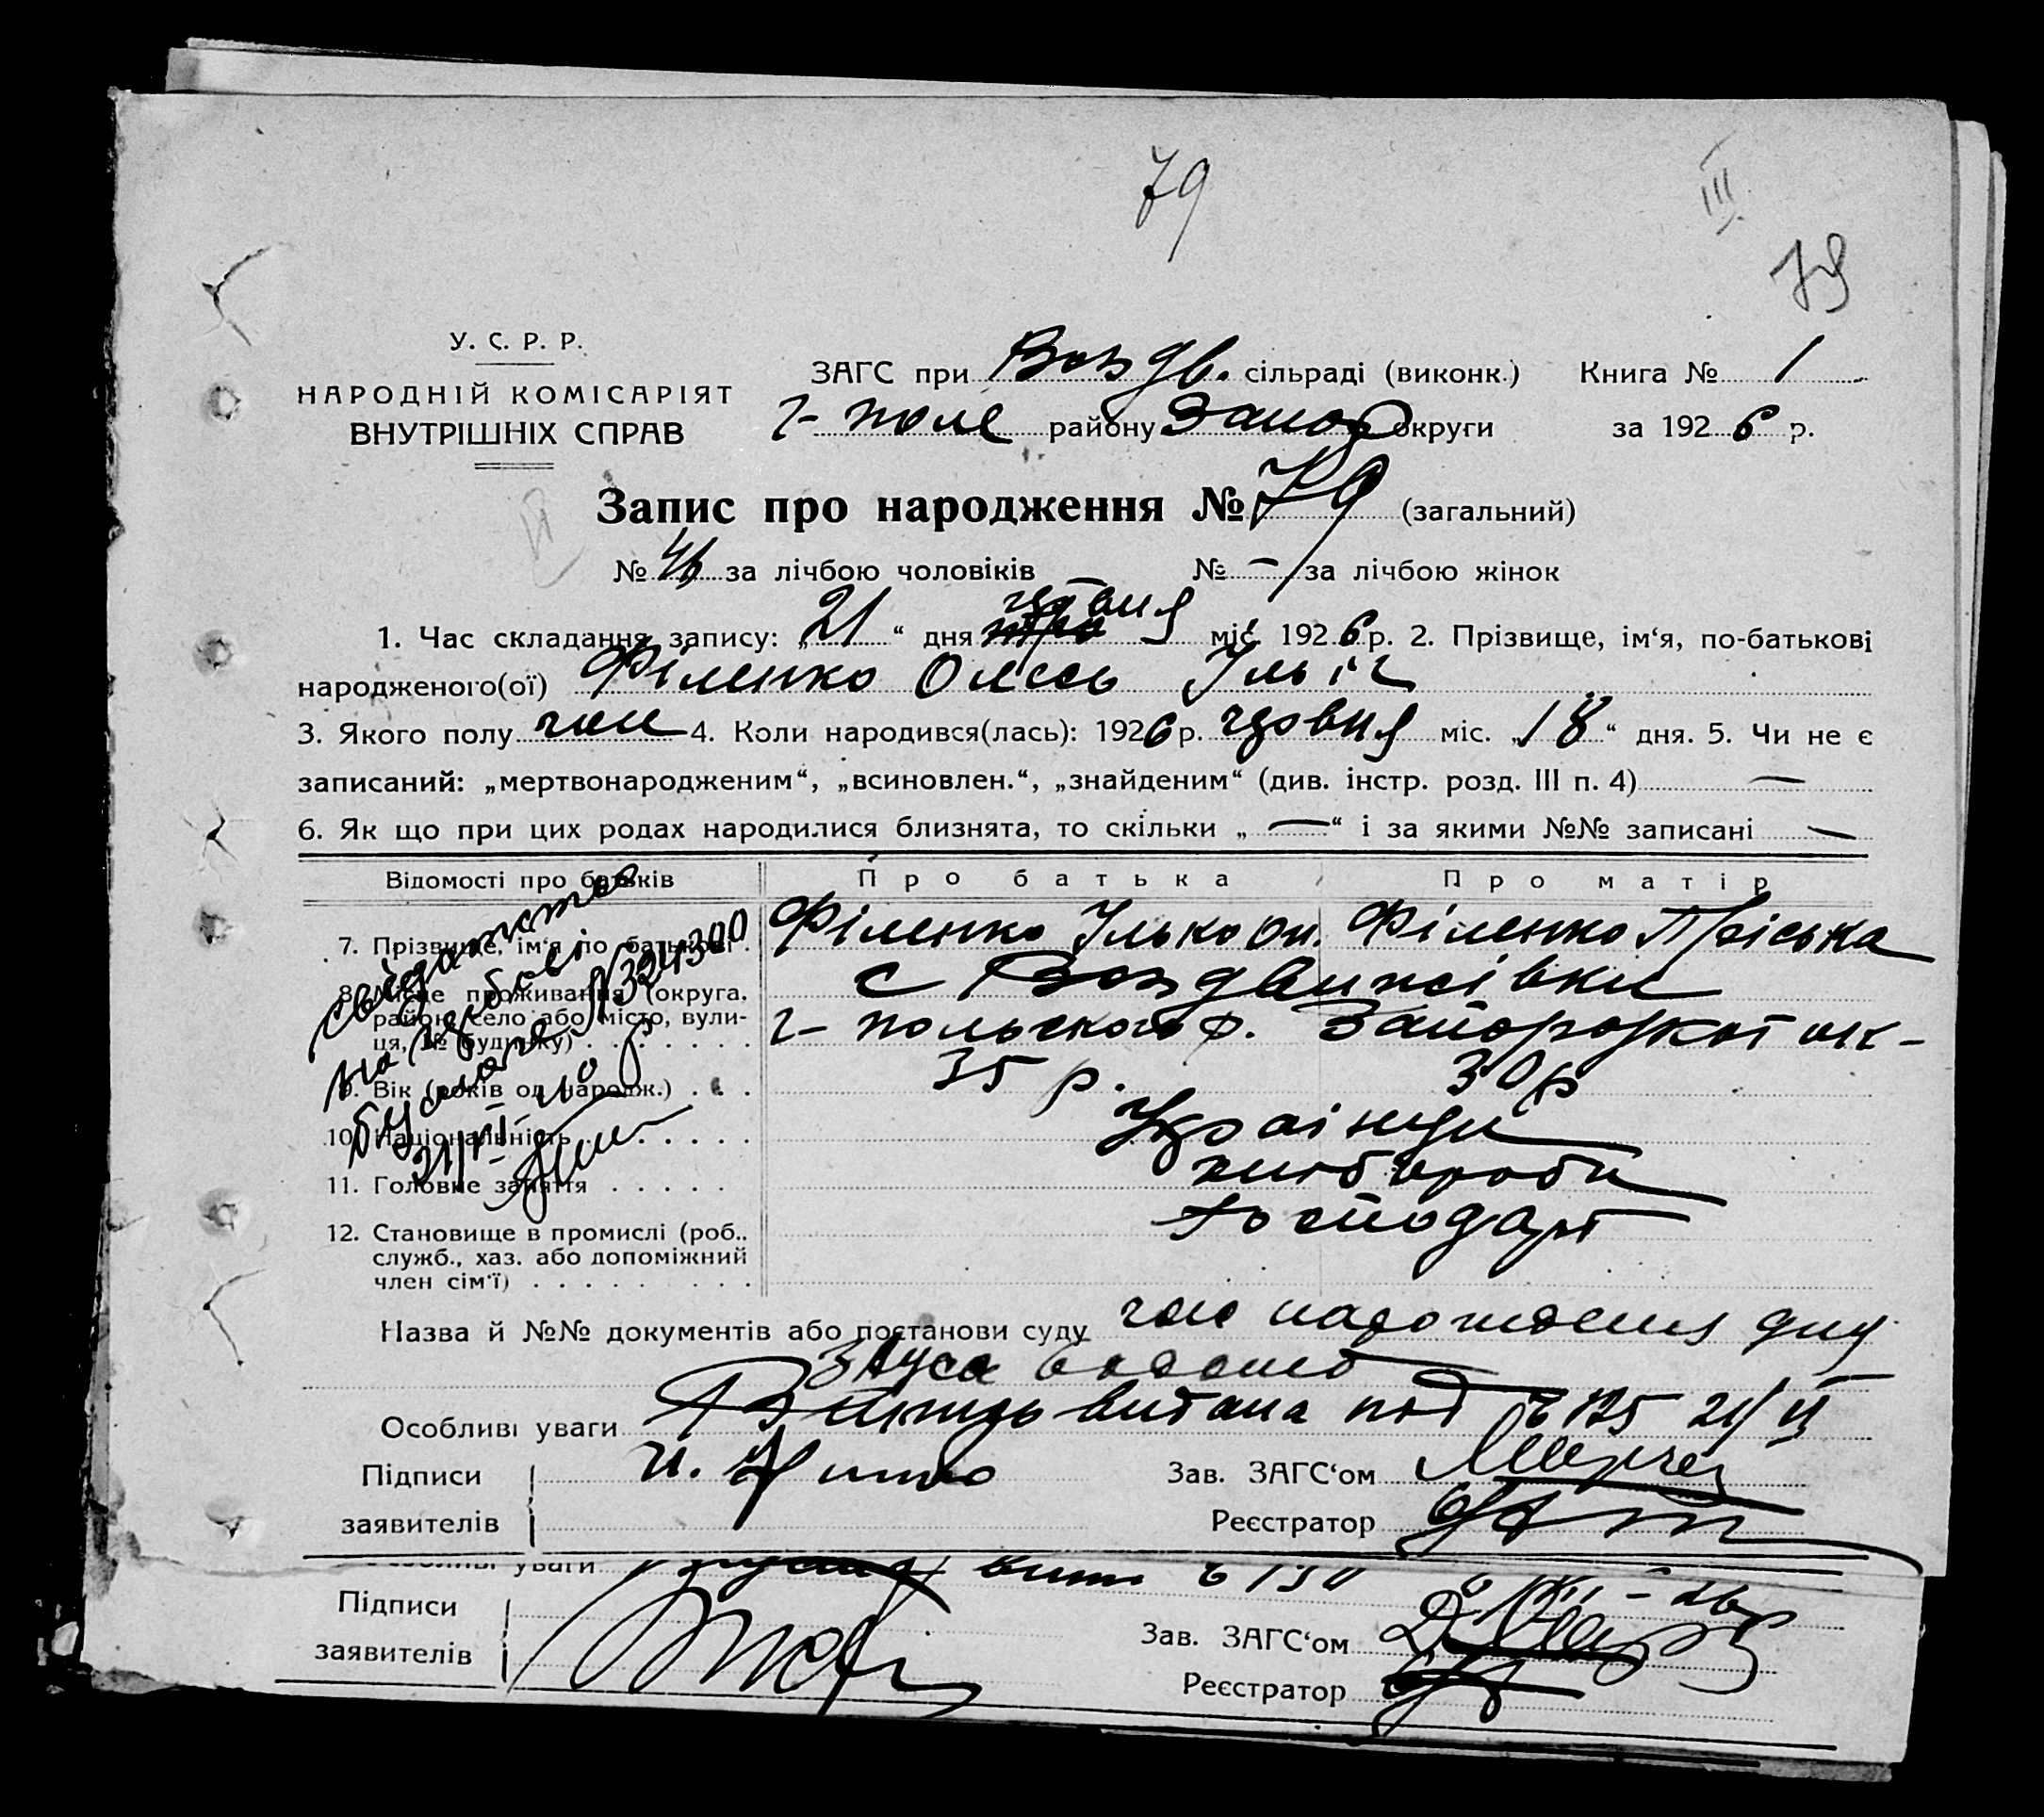 79
III
79
У. С. Р. Р.
НАРОДНІЙ КОМІСАРІЯТ
ВНУТРІШНІХ СПРАВ
ЗАГС при Воздв. сільраді (виконк.) Книга № 1
г- поле району Запор округи за 1926 р.
Запис про народження № 79 (загальний)
№ 46 за лічбою чоловіків № — за лічбою жінок
1. Час складання запису: „21“ дня червня міс. 1926 р. 2. Прізвище, ім‘я, по-батькові
народженого(ої) Філенко Олесь Ільіч
3. Якого полу чол 4. Коли народився(лась): 1926 р. червня міс. „18“ дня. 5. Чи не є
записаний: „мертвонародженим“, „всиновлен.“, „знайденим“ (див. інстр. розд. III п. 4) —
6. Як що при цих родах народилися близнята, то скільки „—“ і за якими №№ записані —
Відомості про батьків Про батька Про матір
7. Прізвище, ім‘я по батькові Філенко Ілько Он. Філенко Пріська
8. Місце проживання (округа, с Воздвижівки
район, село або місто, вули-
ця, № будинку) г- польского р. Запорожкої ок-
9. Вік (років од народж.) 35 р. 30 р
10. Національність Українці
11. Головне заняття хлібороби
12. Становище в промислі (роб., Господарі
служб., хаз. або допоміжний
член сім‘ї)
№ 324300
Назва й №№ документів або постанови суду
Особливі уваги видана под № 125 21/VI
Підписи
заявителів
Зав. ЗАГС‘ом
Реєстратор
Особливі уваги
Підписи
заявителів
Зав. ЗАГС‘ом
Реєстратор